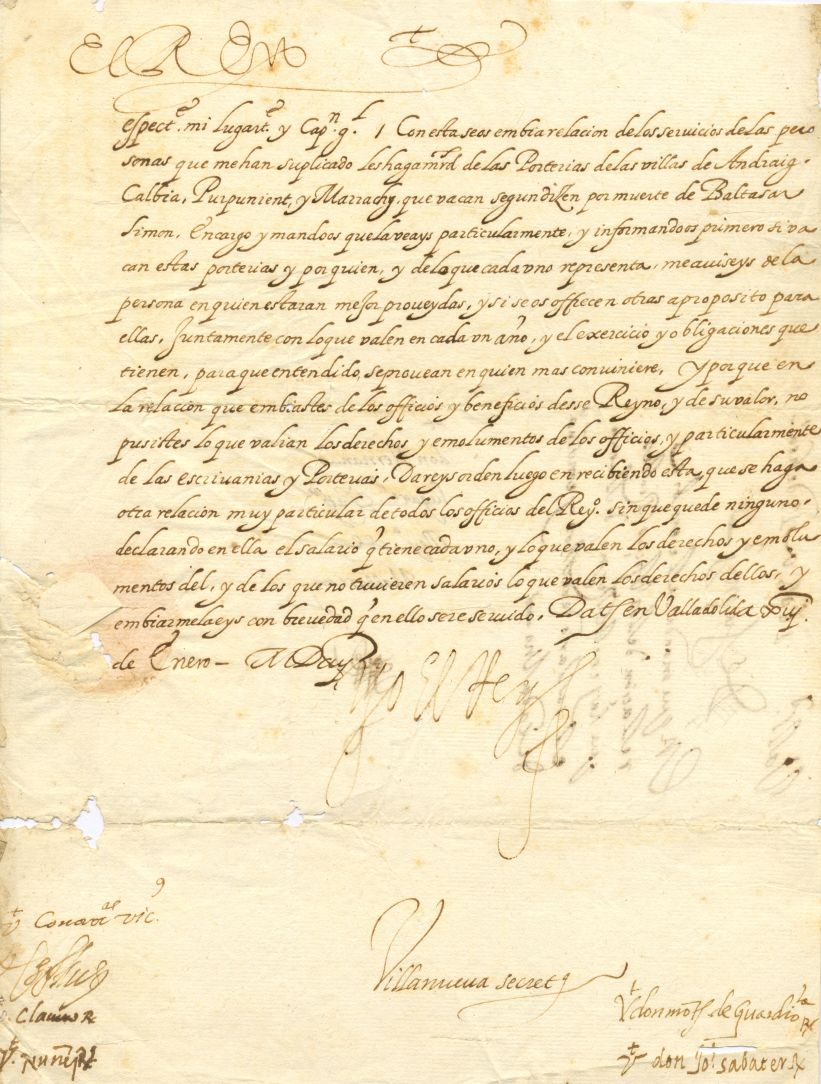 El Rey
espect.e mi lugart.e y Cap.n g.l / Con esta se os embia relacion de los servicios de las per
sonas que me han suplicado les haga mrd de las Porterias de las villas de Andraig,
Calbia, Purpunient, y Marrachy, que vacan segun dizen por muerte de Baltasar
Simon. Encargo y mandoos que la veays particularmente, y informandoos primero si va
can estas porterias y por quien, y de lo que cada vno representa, me aviseys de la
persona en quien estaran mejor proveydas, y si se os offrecen otras a proposito para
ellas, Juntamente con lo que valen en cada vn año, y el exercicio y obligaciones que
tienen, para que entendido, se provean en quien mas conviniere, Y porque en
la relacion que embiastes de los officios y beneficios desse Reyno, y de su valor, no
pusistes lo que valian los derechos y emolumentos de los officios, y particularmente
de las escrivanias y Porterias, Dareys orden luego en recibiendo esta, que se haga
otra relacion muy particular de todos los officios del Rey.o sin que quede ninguno,
declarando en ella el salario q tiene cada vno, y lo que valen los derechos y emolu
mentos del, y de los que no tuvieren salarios lo que valen los derechos dellos, y
embiarmela eys con brevedad q en ello sere servido. Dat. en Valladolid a
de Enero
Yo El Rey
vic.
Villanueva secret.
Clavero R
V.t don de Guardiola R
V.t Nuñez R
V.t don Jo. sabater R